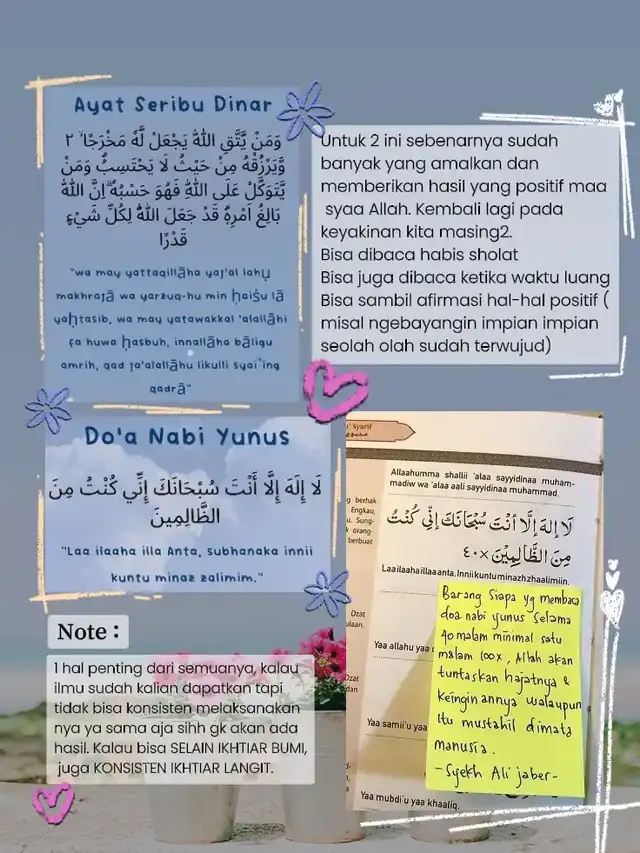 Ayat Seribu Dinar
وَمَنْ يَّتَّقِ اللّٰهَ يَجْعَلْ لَّهٗ مَخْرَجًاۙ ٢
وَّيَرْزُقْهُ مِنْ حَيْثُ لَا يَحْتَسِبُۗ وَمَنْ
يَّتَوَكَّلْ عَلَى اللّٰهِ فَهُوَ حَسْبُهٗۗ اِنَّ اللّٰهَ
بَالِغُ اَمْرِهٖۗ قَدْ جَعَلَ اللّٰهُ لِكُلِّ شَيْءٍ
قَدْرًا
"wa may yattaqillāha yaj'al lahụ
makhrajā wa yarzuq-hu min ḥaiṡu lā
yaḥtasib, wa may yatawakkal 'alallāhi
fa huwa ḥasbuh, innallāha bāligu
amrih, qad ja'alallāhu likulli syai`ing
qadrā"
Untuk 2 ini sebenarnya sudah
banyak yang amalkan dan
memberikan hasil yang positif maa
syaa Allah. Kembali lagi pada
keyakinan kita masing2.
Bisa dibaca habis sholat
Bisa juga dibaca ketika waktu luang
Bisa sambil afirmasi hal-hal positif (
misal ngebayangin impian impian
seolah olah sudah terwujud)
Do'a Nabi Yunus
لَا إِلَهَ إِلَّا أَنْتَ سُبْحَانَكَ إِنِّي كُنْتُ مِنَ
الظَّالِمِينَ
"Laa ilaaha illa Anta, subhanaka innii
kuntu minaz zalimim."
Note :
1 hal penting dari semuanya, kalau
ilmu sudah kalian dapatkan tapi
tidak bisa konsisten melaksanakan
nya ya sama aja sihh gk akan ada
hasil. Kalau bisa SELAIN IKHTIAR BUMI,
juga KONSISTEN IKHTIAR LANGIT.
Syarif
Allaahumma shallii 'alaa sayyidinaa muham-
madiw wa 'alaa aali sayyidinaa muhammad.
g berhak
Engkau,
u. Sung-
k orang-
berbuat
لَا إِلٰهَ إِلَّا أَنْتَ سُبْحَانَكَ إِنِّي كُنْتُ
مِنَ الظَّالِمِيْنَ ×٤٠
Laailaahaillaaanta.Inniikuntuminazhzhaalimiin.
Barang siapa yg membaca
doa nabi yunus selama
40 malam minimal satu
malam 100x, Allah akan
tuntaskan hajatnya &
keinginannya walaupun
itu mustahil dimata
manusia.
-Syekh Ali jaber-
Dzat
ulaan.
Yaa allahu yaa
Dzat
dan
Yaa samii'u yaa
Yaa mubdi'u yaa khaaliq.